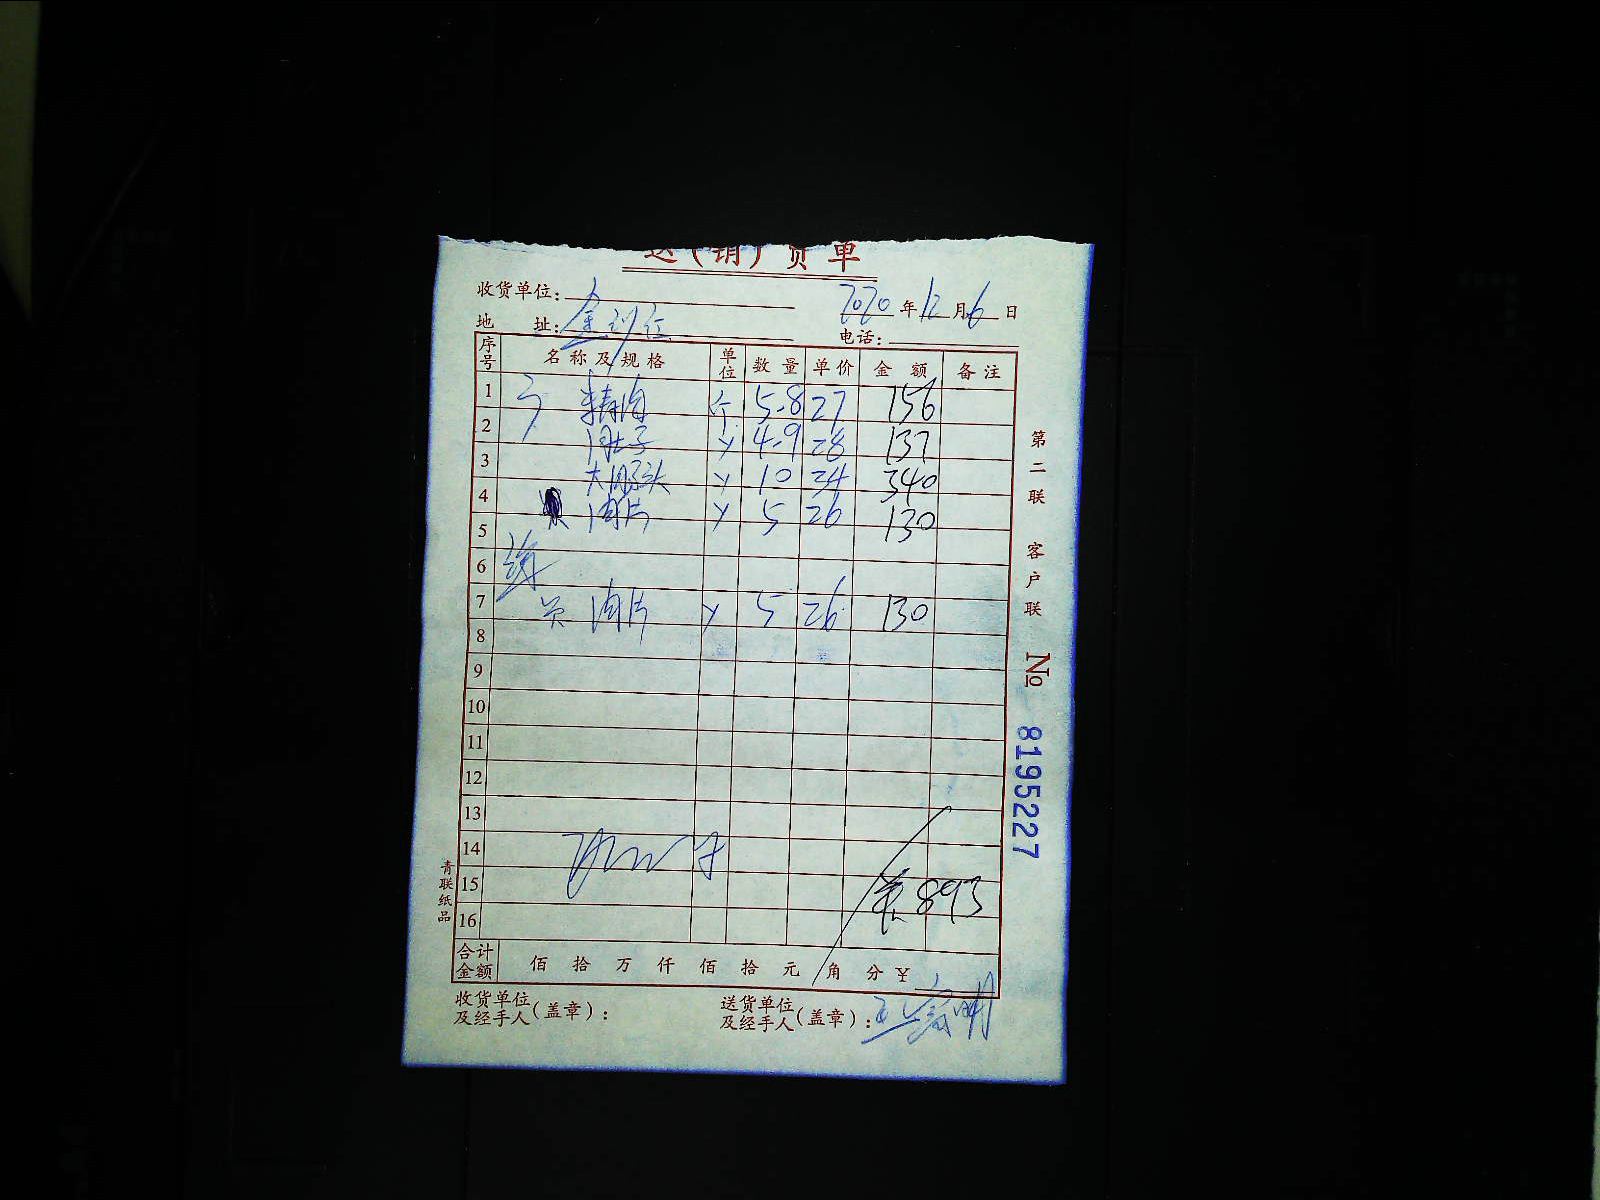 送(销)货单
收货单位：
2020年12月6日
地 址：金到位
电话：
序号 名称及规格 单位 数量 单价 金额 备注
1 精肉 个 5.8 27 156
2 肚子 4.9 28 137
3 大 头 10 34 340
4 肉片 5 26 130
5
6
7 肉片 5 26 130
8
9
10
11
12
13
14
15 893
16
合计金额 佰 拾 万 仟 佰 拾 元 角 分 ¥
收货单位及经手人(盖章)：
送货单位及经手人(盖章)：
第二联 客户联 № 8195227
青联纸品